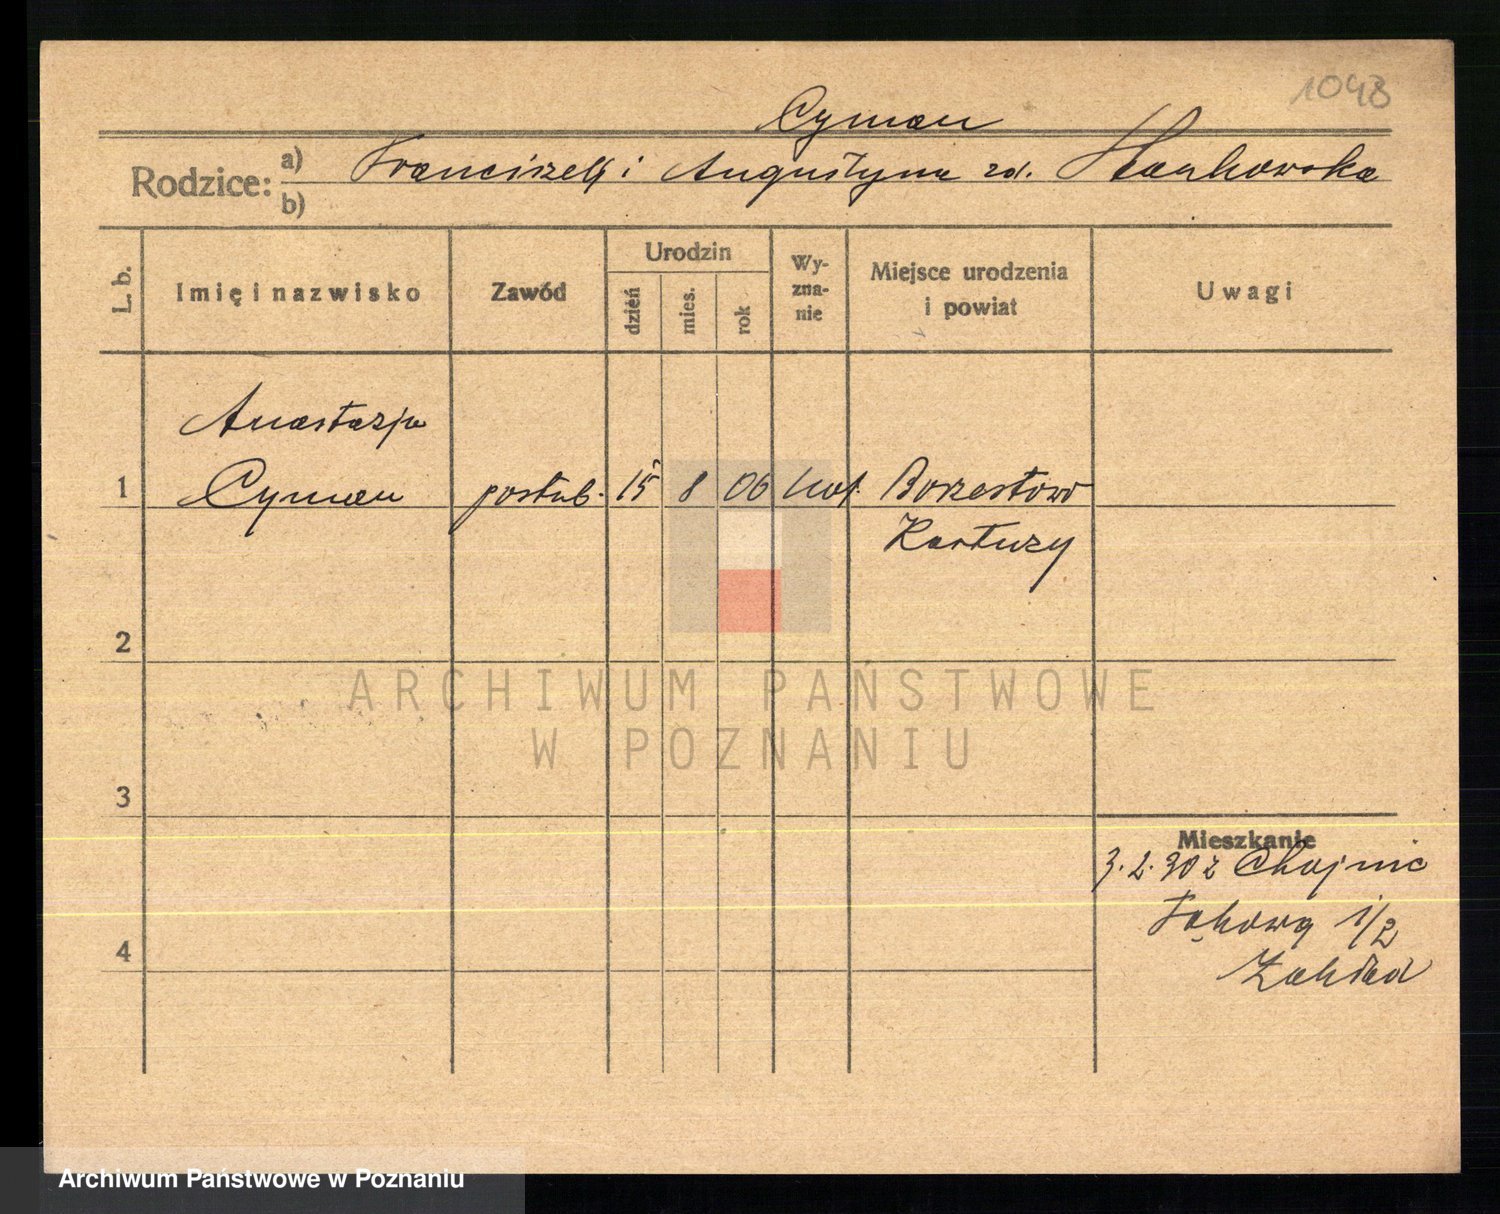 1043
Cyman
Rodzice: a) Franciszek i Augustyna zd. Stankowska
b)
L. b.
Imię i nazwisko
Zawód
Urodzin
dzień
mies.
rok
Wy-
zna-
nie
Miejsce urodzenia
i powiat
Uwagi
Anastazja
1 Cyman postul. 15 8 06 kat. Borzestowo
Kartuzy
2
ARCHIWUM PAŃSTWOWE
W POZNANIU
3
Mieszkanie
3.2.30 z Chojnic
Łąkowa 1/2
4
Zakład
Archiwum Państwowe w Poznaniu